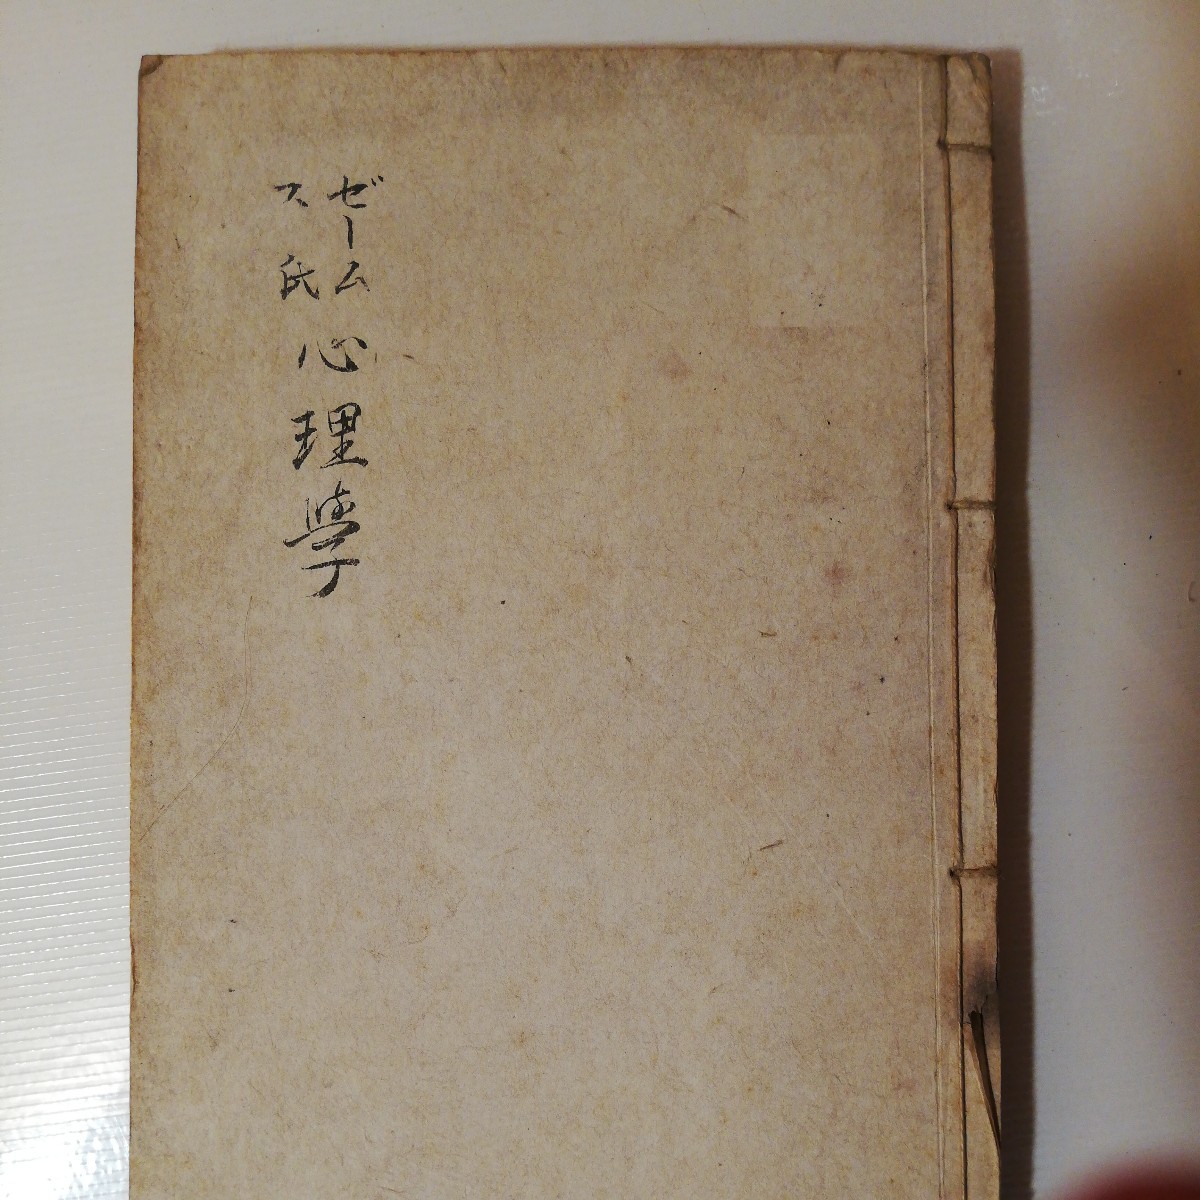 ゼームス氏心理學